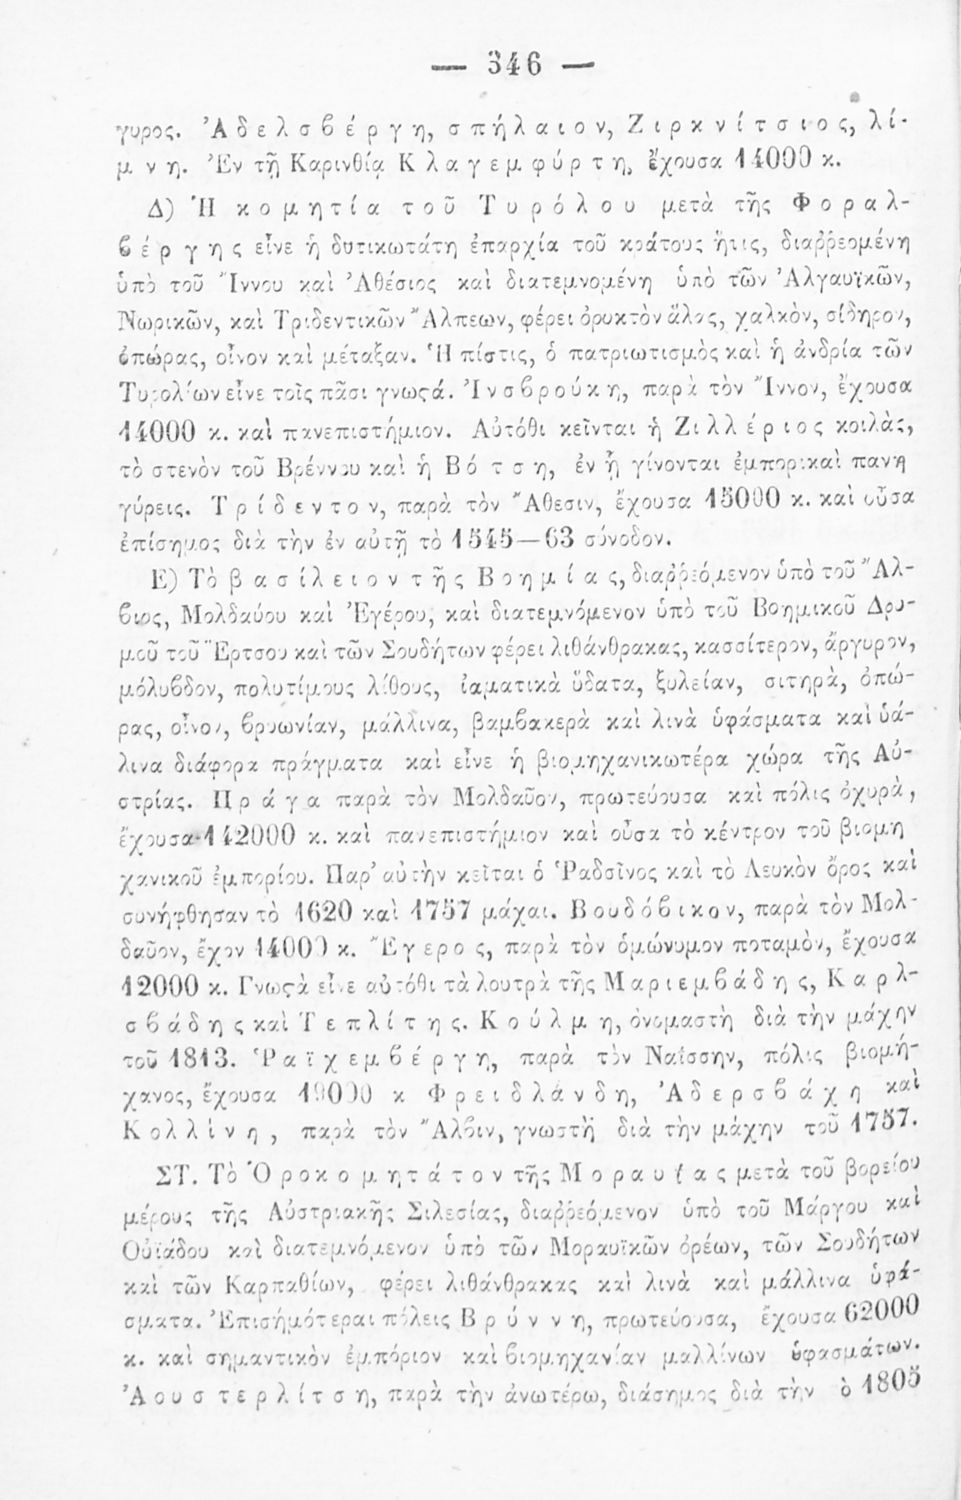 — 346 —
γυρος. Ἀδελσβέργη, σπήλαιον, Ζιρκνίτσιος, λί-
μνη. Ἐν τῇ Καρινθίᾳ Κλαγεμφύρτη, ἔχουσα 14000 κ.
Δ) Ἡ κομητία τοῦ Τυρόλου μετὰ τῆς Φοραλ-
βέργης εἶνε ἡ δυτικωτάτη ἐπαρχία τοῦ κράτους ἥτις, διαῤῥεομένη
ὑπὸ τοῦ Ἴννου καὶ Ἀθέσιος καὶ διατεμνομένη ὑπὸ τῶν Ἀλγαυϊκῶν,
Νωρικῶν, καὶ Τριδεντικῶν Ἄλπεων, φέρει ὀρυκτὸν ἅλας, χαλκὸν, σίδηρον,
ὀπώρας, οἶνον καὶ μέταξαν. Ἡ πίστις, ὁ πατριωτισμὸς καὶ ἡ ἀνδρία τῶν
Τυρολίων εἶνε τοῖς πᾶσι γνωϛά. Ἰνσβρούκη, παρὰ τὸν Ἴννον, ἔχουσα
14000 κ. καὶ πανεπιστήμιον. Αὐτόθι κεῖνται ἡ Ζιλλέριος κοιλὰς,
τὸ στενὸν τοῦ Βρέννου καὶ ἡ Βότση, ἐν ᾗ γίνονται ἐμπορικαὶ πανη
γύρεις. Τρίδεντον, παρὰ τὸν Ἄθεσιν, ἔχουσα 15000 κ. καὶ οὖσα
ἐπίσημος διὰ τὴν ἐν αὐτῇ τὸ 1545—63 σύνοδον.
Ε) Τὸ βασίλειον τῆς Βοημίας, διαῤῥεόμενον ὑπὸ τοῦ Ἄλ-
βιος, Μολδαύου καὶ Ἐγέρου, καὶ διατεμνόμενον ὑπὸ τοῦ Βοημικοῦ Δρυ-
μοῦ τοῦ Ἔρτσου καὶ τῶν Σουδήτων φέρει λιθάνθρακας, κασσίτερον, ἄργυρον,
μόλυβδον, πολυτίμους λίθους, ἰαματικὰ ὕδατα, ξυλείαν, σιτηρὰ, ὀπώ-
ρας, οἶνον, βρυωνίαν, μάλλινα, βαμβακερὰ καὶ λινὰ ὑφάσματα καὶ ὑά-
λινα διάφορα πράγματα καὶ εἶνε ἡ βιομηχανικωτέρα χώρα τῆς Αὐ-
στρίας. Πράγα παρὰ τὸν Μολδαῦον, πρωτεύουσα καὶ πόλις ὀχυρὰ,
ἔχουσα 142000 κ. καὶ πανεπιστήμιον καὶ οὖσα τὸ κέντρον τοῦ βιομη
χανικοῦ ἐμπορίου. Παρ’ αὐτὴν κεῖται ὁ Ῥαδσῖνος καὶ τὸ Λευκὸν ὄρος καὶ
συνήφθησαν τὸ 1620 καὶ 1757 μάχαι. Βουδόβικον, παρὰ τὸν Μολ-
δαῦον, ἔχον 14000 κ. Ἔγερος, παρὰ τὸν ὁμώνυμον ποταμὸν, ἔχουσα
12000 κ. Γνωϛὰ εἶνε αὐτόθι τὰ λουτρὰ τῆς Μαριεμβάδης, Καρλ-
σβάδης καὶ Τεπλίτης. Κούλμη, ὀνομαστὴ διὰ τὴν μάχην
τοῦ 1813. Ῥαϊχεμβέργη, παρὰ τὸν Ναΐσσην, πόλις βιομή-
χανος, ἔχουσα 19000 κ Φρειδλάνδη, Ἀδερσβάχη καὶ
Κολλίνη, παρὰ τὸν Ἄλβιν, γνωστὴ διὰ τὴν μάχην τοῦ 1757.
ΣΤ. Τὸ Ὁροκομητάτον τῆς Μοραυΐας μετὰ τοῦ βορείου
μέρους τῆς Αὐστριακῆς Σιλεσίας, διαῤῥεόμενον ὑπὸ τοῦ Μάργου καὶ
Οὐϊάδου καὶ διατεμνόμενον ὑπὸ τῶν Μοραυϊκῶν ὀρέων, τῶν Σουδήτων
καὶ τῶν Καρπαθίων, φέρει λιθάνθρακας καὶ λινὰ καὶ μάλλινα ὑφά-
σματα. Ἐπισήμότεραι πόλεις Βρύννη, πρωτεύουσα, ἔχουσα 62000
κ. καὶ σημαντικὸν ἐμπόριον καὶ βιομηχανίαν μαλλίνων ὑφασμάτων.
Ἀουστερλίτση, παρὰ τὴν ἀνωτέρω, διάσημος διὰ τὴν ὁ 1805